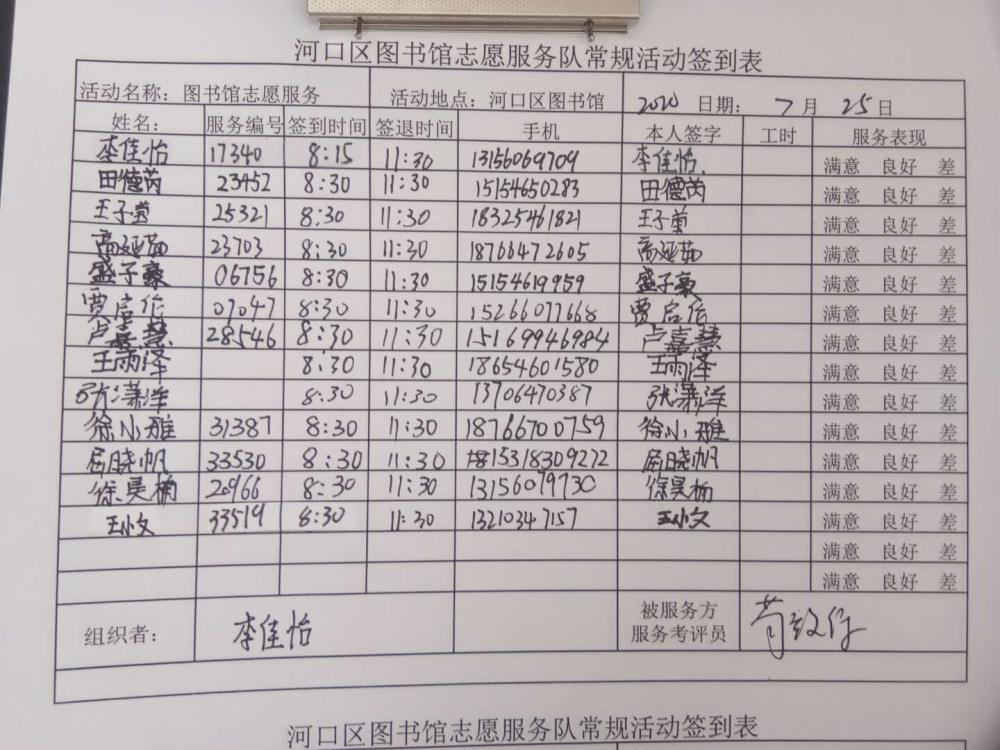 河口区图书馆志愿服务队常规活动签到表
活动名称：图书馆志愿服务 活动地点：河口区图书馆 2020 日期： 7 月 25 日
姓名： 服务编号 签到时间 签退时间 手机 本人签字 工时 服务表现
李佳怡 17340 8:15 11:30 13156069709 李佳怡 满意 良好 差
田德芮 23452 8:30 11:30 15154650283 田德芮 满意 良好 差
王子萱 25321 8:30 11:30 18325461821 王子萱 满意 良好 差
高延茹 23703 8:30 11:30 18766472605 高延茹 满意 良好 差
盛子豪 06756 8:30 11:30 15154619959 盛子豪 满意 良好 差
贾启佗 07047 8:30 11:30 15266077668 贾启佗 满意 良好 差
卢嘉慧 28546 8:30 11:30 15169946984 卢嘉慧 满意 良好 差
王雨泽 8:30 11:30 18654601580 王雨泽 满意 良好 差
张潇洋 8:30 11:30 13706470387 张潇洋 满意 良好 差
徐小雅 31387 8:30 11:30 18766700759 徐小雅 满意 良好 差
屈晓帆 33530 8:30 11:30 15318309272 屈晓帆 满意 良好 差
徐昊楠 20966 8:30 11:30 13156079730 徐昊楠 满意 良好 差
王小文 33519 8:30 11:30 13210347157 王小文 满意 良好 差
满意 良好 差
满意 良好 差
组织者： 李佳怡 被服务方
服务考评员
河口区图书馆志愿服务队常规活动签到表